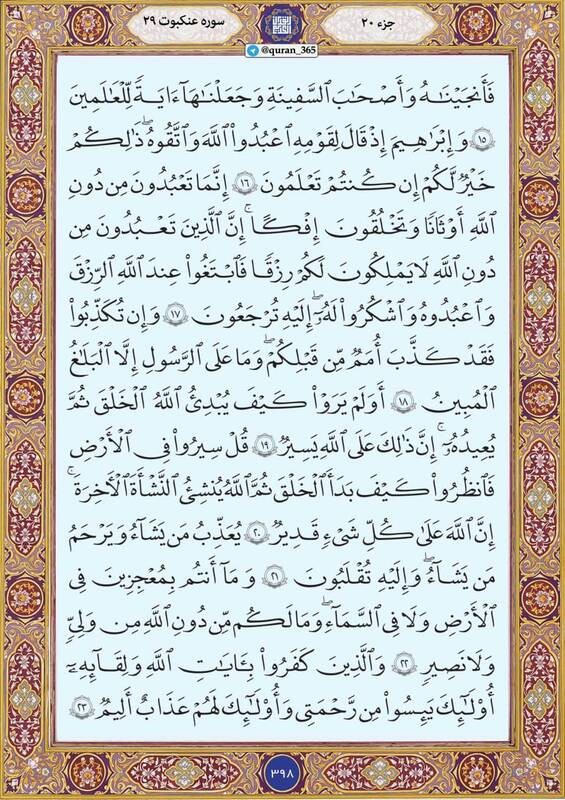 جزء ۲۰
سوره عنکبوت ۲۹
@quran_365
فَأَنجَيْنَـٰهُ وَأَصْحَـٰبَ ٱلسَّفِينَةِ وَجَعَلْنَـٰهَآ ءَايَةً لِّلْعَـٰلَمِينَ
١٥ وَإِبْرَٰهِيمَ إِذْ قَالَ لِقَوْمِهِ ٱعْبُدُوا۟ ٱللَّهَ وَٱتَّقُوهُ ۖ ذَٰلِكُمْ
خَيْرٌ لَّكُمْ إِن كُنتُمْ تَعْلَمُونَ ١٦ إِنَّمَا تَعْبُدُونَ مِن دُونِ
ٱللَّهِ أَوْثَـٰنًا وَتَخْلُقُونَ إِفْكًا ۚ إِنَّ ٱلَّذِينَ تَعْبُدُونَ مِن
دُونِ ٱللَّهِ لَا يَمْلِكُونَ لَكُمْ رِزْقًا فَٱبْتَغُوا۟ عِندَ ٱللَّهِ ٱلرِّزْقَ
وَٱعْبُدُوهُ وَٱشْكُرُوا۟ لَهُۥٓ ۖ إِلَيْهِ تُرْجَعُونَ ١٧ وَإِن تُكَذِّبُوا۟
فَقَدْ كَذَّبَ أُمَمٌ مِّن قَبْلِكُمْ ۖ وَمَا عَلَى ٱلرَّسُولِ إِلَّا ٱلْبَلَـٰغُ
ٱلْمُبِينُ ١٨ أَوَلَمْ يَرَوْا۟ كَيْفَ يُبْدِئُ ٱللَّهُ ٱلْخَلْقَ ثُمَّ
يُعِيدُهُۥٓ ۚ إِنَّ ذَٰلِكَ عَلَى ٱللَّهِ يَسِيرٌ ١٩ قُلْ سِيرُوا۟ فِى ٱلْأَرْضِ
فَٱنظُرُوا۟ كَيْفَ بَدَأَ ٱلْخَلْقَ ثُمَّ ٱللَّهُ يُنشِئُ ٱلنَّشْأَةَ ٱلْـَٔاخِرَةَ ۚ
إِنَّ ٱللَّهَ عَلَىٰ كُلِّ شَىْءٍ قَدِيرٌ ٢٠ يُعَذِّبُ مَن يَشَآءُ وَيَرْحَمُ
مَن يَشَآءُ ۖ وَإِلَيْهِ تُقْلَبُونَ ٢١ وَمَآ أَنتُم بِمُعْجِزِينَ فِى
ٱلْأَرْضِ وَلَا فِى ٱلسَّمَآءِ ۖ وَمَا لَكُم مِّن دُونِ ٱللَّهِ مِن وَلِىٍّ
وَلَا نَصِيرٍ ٢٢ وَٱلَّذِينَ كَفَرُوا۟ بِـَٔايَـٰتِ ٱللَّهِ وَلِقَآئِهِۦٓ
أُو۟لَـٰٓئِكَ يَئِسُوا۟ مِن رَّحْمَتِى وَأُو۟لَـٰٓئِكَ لَهُمْ عَذَابٌ أَلِيمٌ ٢٣
۳۹۸